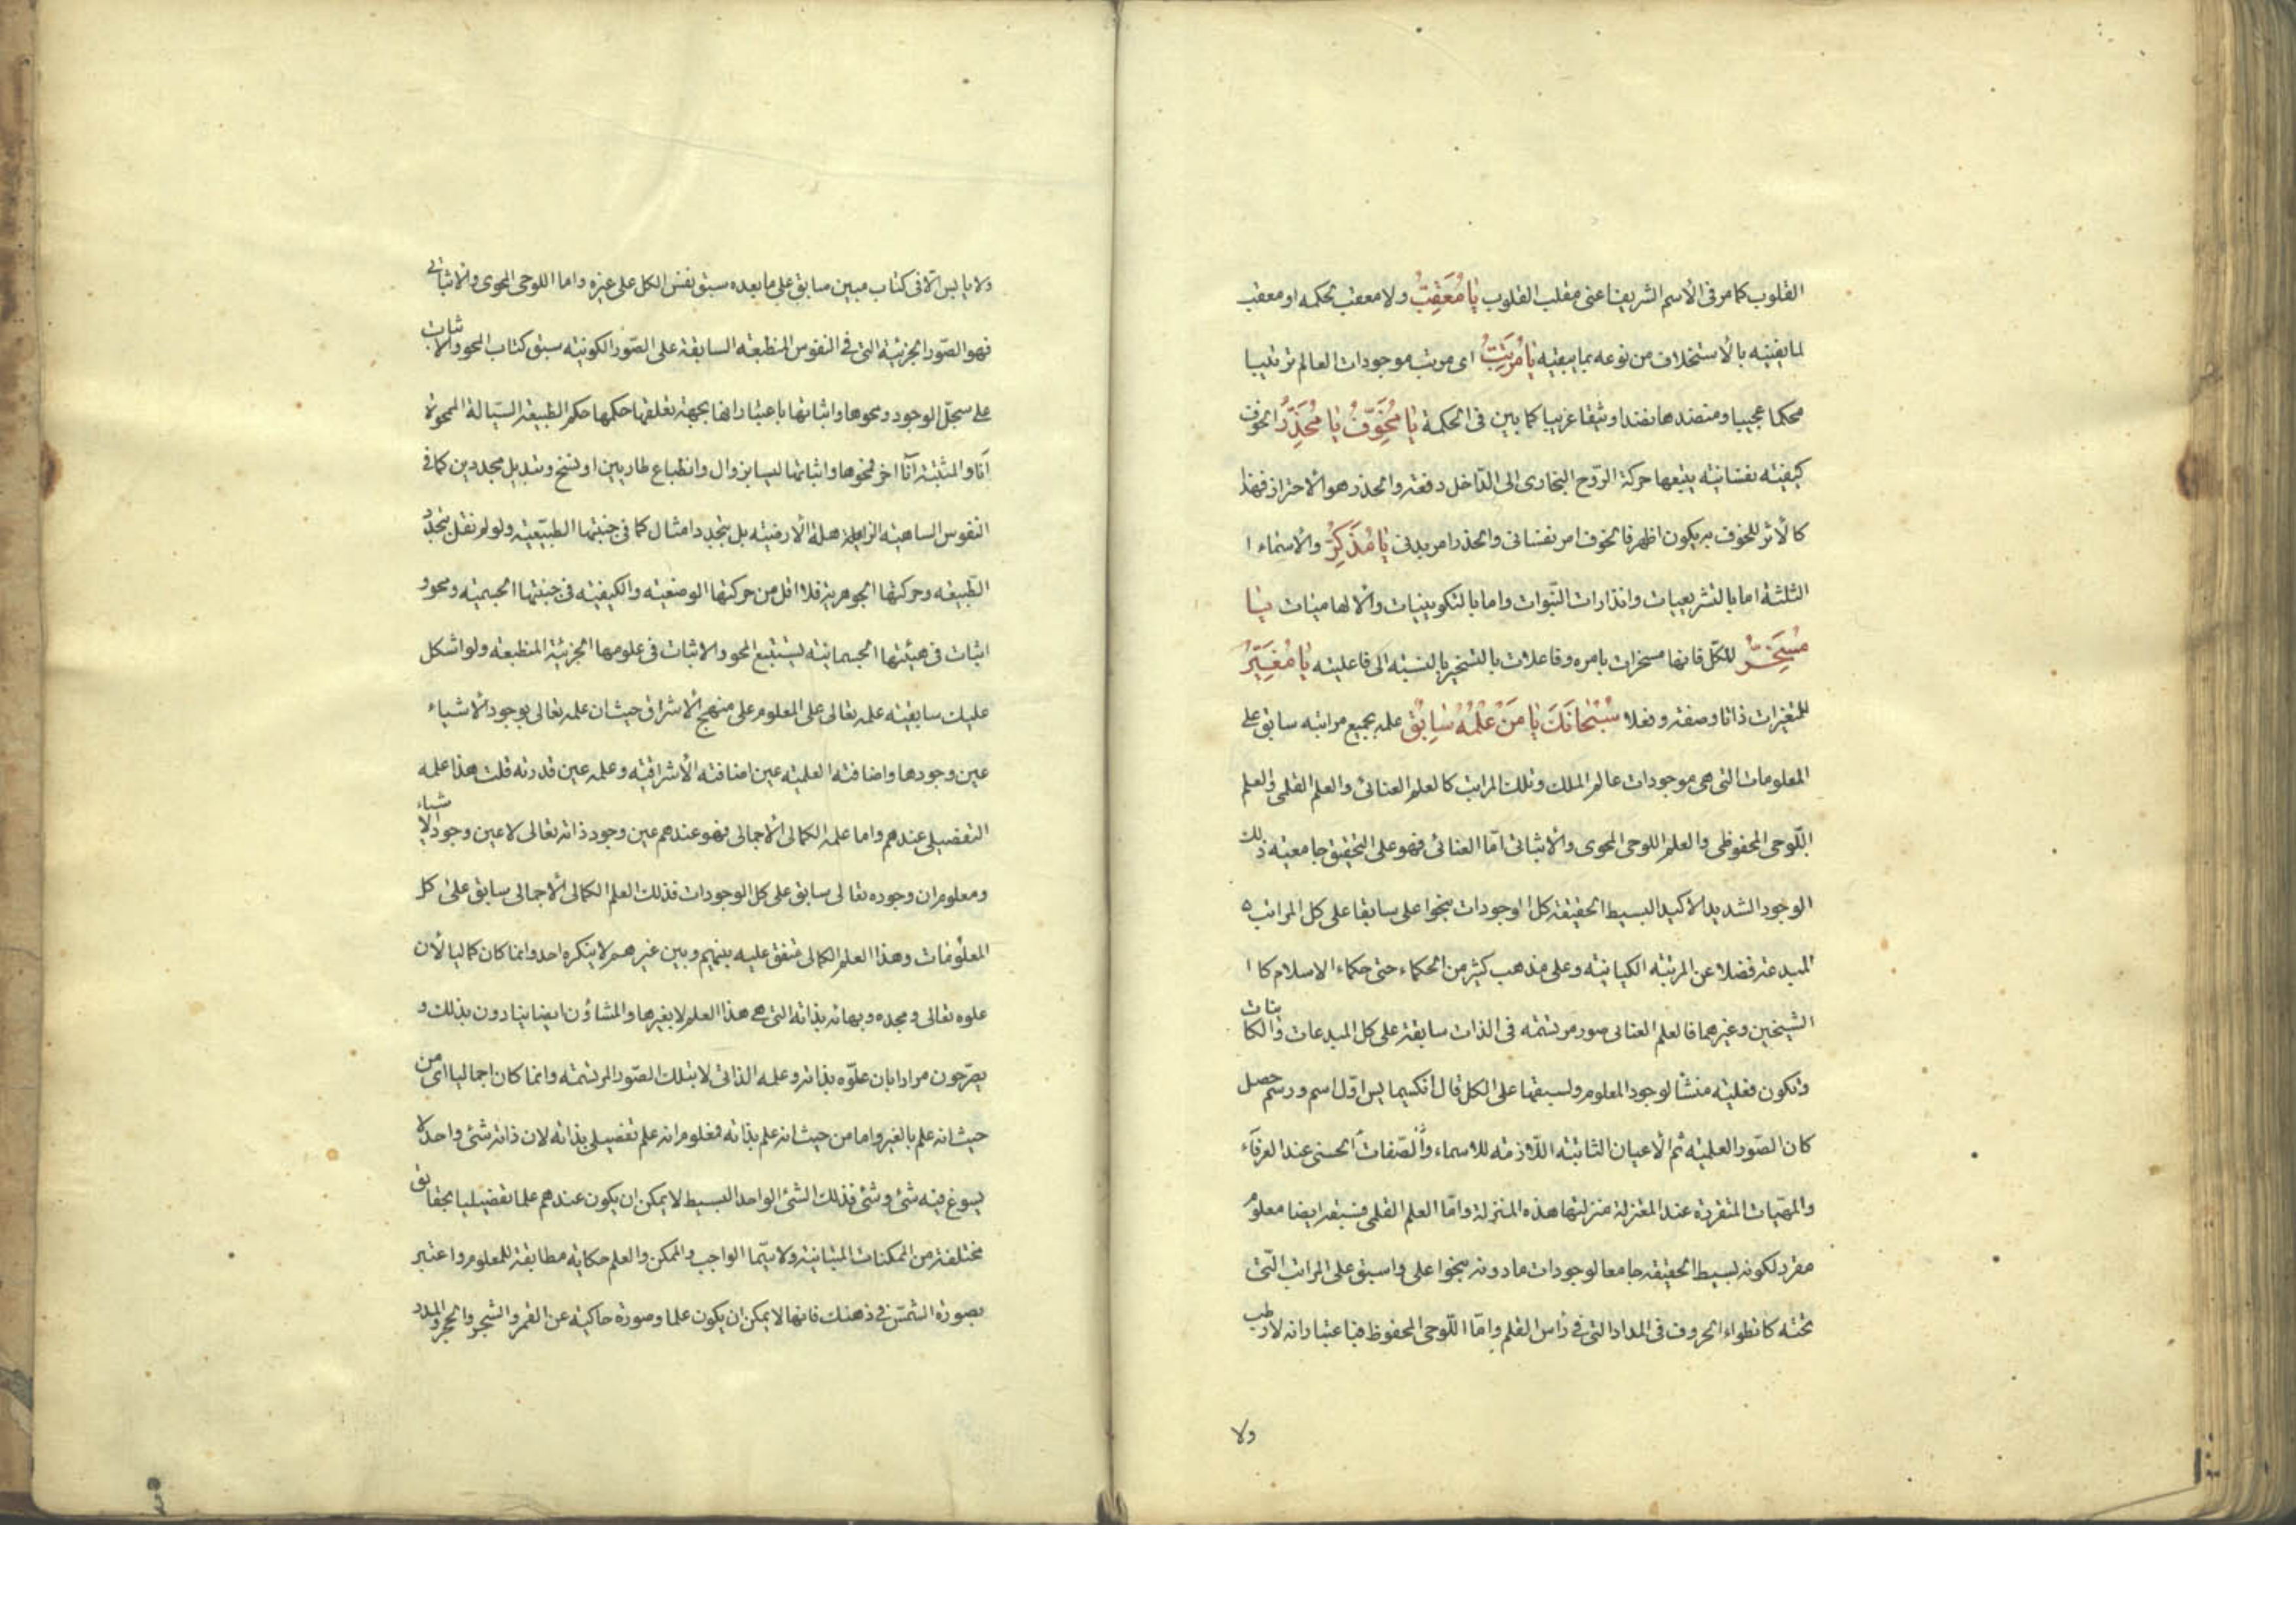 القلوب كما مر فى الأسم الشريف اعنى مقلب القلوب يا مُعَقِّبُ ولا معقب لحكمه او معقب
لما يفنيه بالأستخلاف من نوعه بما يبقيه يا مُرَتِّبُ اى مرتب موجودات العالم ترتيبا
محكما عجيبا ومنضدها نضدا وثيقا غريبا كما بين فى الحكمة يا مُخَوِّفُ يا مُحَذِّرُ الخوف
كيفيته نفسانيته يتبعها حركة الرّوح البخارى الى الدّاخل دفعة والحذر هو الأحتراز فهذا
كالأثر للخوف به يكون اظهر فالخوف امر نفسانى والحذر امر بدنى يا مُذَكِّرُ والأسماء ا
الثلثة اما بالتشريعيات وانذارات النّبوات واما بالتكوينيات والألهاميات يا
مُسَخِّرُ للكلّ فانها مسخرات بامره وفاعلات بالتسخير بالنسبته الى فاعليته يا مُغَيِّرُ
للمتغيرات ذاتا وصفة وفعلا سُبْحانَكَ يا مَنْ عِلْمُهُ سابِقٌ علمه بجميع مراتبه سابق على
المعلومات التى هى موجودات عالم الملك وتلك المراتب كالعلم العنائى والعلم القلمى والعلم
اللّوحى المحفوظى والعلم اللوحى المحوى والأثباتى امّا العنائى فهو على التحقيق جامعيته ذلك
الوجود الشديد الأكيد البسيط الحقيقة كل الوجودات بنحو اعلى سابقا على كل المراتب ه
المبدعته فضلا عن المرتبته الكيانيته وعلى مذهب كثير من الحكماء حتى حكماء الاسلام كا ا
الشيخين وغيرهما فالعلم العنائى صور مرتسمته فى الذات سابقة على كل المبدعات والكائنات
وتكون فعليته منشأ لوجود المعلوم ولسبقها على الكل قال انكسيمايس اوّل اسم ورسم حصل
كان الصّور العلميته ثم الأعيان الثابتته اللّازمته للاسماء والصّفات الحسنى عند العرفاء
والمهيّات المتقررة عند المعتزلة منزلتها هذه المنزلة وامّا العلم القلمى فسبقه ايضا معلوم
مقرر لكونه بسيط الحقيقه جامعا لوجودات ما دونه بنحو اعلى واسبق على المراتب الّتى
تحته كانطواء الحروف فى المداد التى فى رأس القلم وامّا اللّوحى المحفوظ فباعتبار انه لا رطب
ولا
ولا يابس الّا فى كتاب مبين سابق على ما بعده سبق نفس الكل على غيره واما اللوحى المحوى والاثباتى
فهو الصّور الجزئيّة التى فى النفوس المنطبعته السابقة على الصّور الكونيته سبق كتاب المحو والاثبات
على سجلّ الوجود ومحوها واثباتها باعتبار انها بجهة تعلقها حكمها حكم الطبيعة السيّالة الممحوة
آنا والمثبتة آنا اخر فمحوها واثباتها ليسا بزوال وانطباع طاريين او نسخ وتبديل مجددين كما فى
النفوس الساهيته الزاهلة الأرضيته بل بتجدد امثال كما فى جنبتها الطبيّعيته ولو لم نقل بتجدّد
الطّبيعه وحركتها الجوهرية فلا اقل من حركتها الوضعيته والكيفيته فى جنبتها الجسميته ومحو و
اثبات فى هيئتها الجسمانيته ليستتبع المحو والاثبات فى علومها الجزئيّة المنطبعته ولو اشكل
عليك سابقيته علمه تعالى على المعلوم على منهج الأشراق حيث ان علمه تعالى بوجود الأشياء
عين وجودها واضافته العلميته عين اضافته الأشراقيته وعلمه عين قدرته قلت هذا علمه
التفصيلى عندهم واما علمه الكمالى الأجمالى فهو عندهم عين وجود ذاته تعالى لا عين وجود الاشياء
ومعلوم ان وجوده تعالى سابق على كل الوجودات فذلك العلم الكمالى الأجمالى سابق على كل
المعلومات وهذا العلم الكمالى متفق عليه بينهم وبين غيرهم لا ينكره احد وانما كان كماليا لأن
علوه تعالى ومجده وبهائه بذاته التى هى هذا العلم لا بغيرها والمشاؤن ايضا ينادون بذلك و
يصرّحون مرارا بان علوّه بذاته وعلمه الذاتى لا بتلك الصّور المرتسمته وانما كان اجماليا اى من
حيث انه علم بالغير واما من حيث انه علم بذاته فمعلوم انه علم تفصيلى بذاته لان ذاته شئ واحد لا
يسوغ فيه شئ وشئ فذلك الشئ الواحد البسيط لا يمكن ان يكون عندهم علما تفصيليا بحقائق
مختلفة من الممكنات المتباينة ولا سيّما الواجب والممكن والعلم حكاية مطابقة للمعلوم واعتبر
بصورة الشمس فى ذهنك فانها لا يمكن ان يكون علما وصورة حاكيه عن القمر والشجر والحجر والمدر